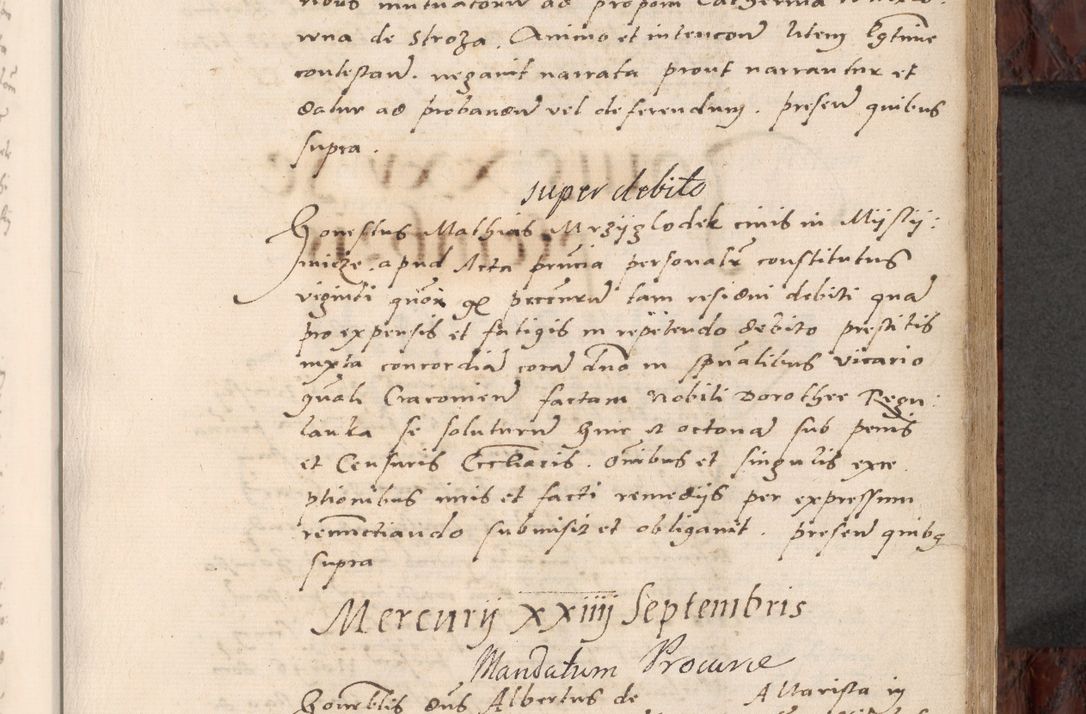 urna de Stroza. Animo et intencone litem lgtime
contestan. negavit narrata prout narrantur et
datur ad probandu vel deferendum. presen quibus
supra.
super debito
Honestus Mathias Mrziyglodek civis in Mijsly:
micze. apud Acta pncia personalr constitutus
viginti quor gl peccunru tam residui debiti qua
pro expensis et fatigis in repetendo debito prestitis
iuxta concordia cora dno in spualibus vicario
gnali Cracovien factam Nobili Dorothee Regu:
lanka se soluturu hinc ad octona sub penis
et Censuris Eccliacis. omibus et singulis exce
ptionibus iuris et facti remedijs per expressum
renunctiando submisit et obligavit. presen quibq
supra
Mercurij xxiiij Septembris
Mandatum Procurie
Honorblis dns Albertus de Altarista in